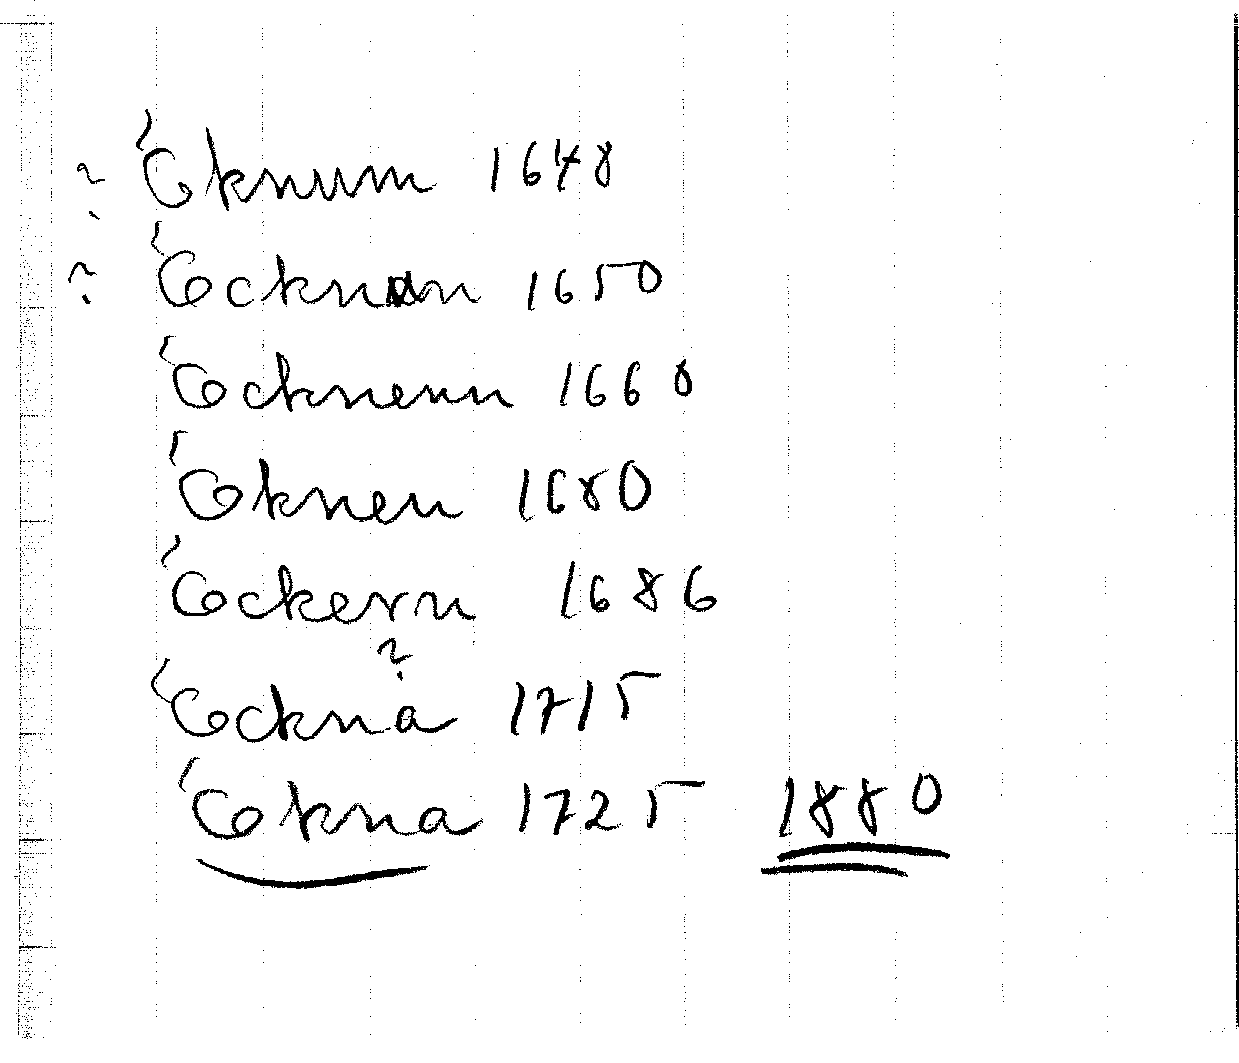 ? Eknum 1648
? Ecknan 1650
Ecknenn 1660
Eknen 1680
Eckern 1686
Eckna ? 1715
Ekna 1725 1880